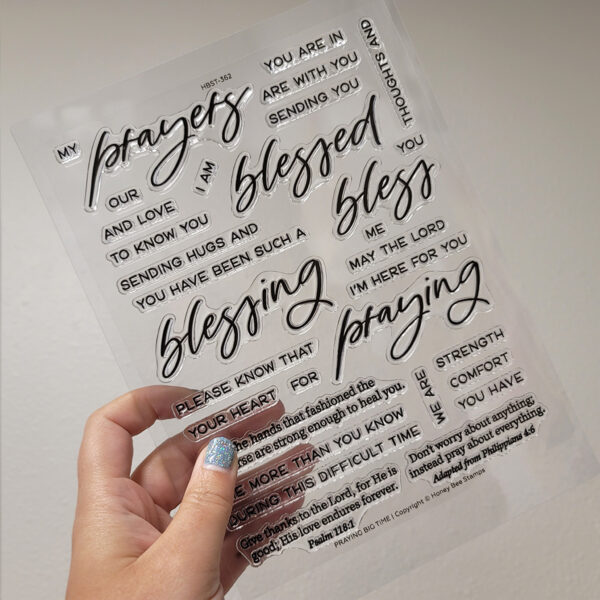 HBST-362
MY
prayers
YOU ARE IN
ARE WITH YOU
SENDING YOU
THOUGHTS AND
OUR
I AM
blessed
YOU
bless
AND LOVE
TO KNOW YOU
SENDING HUGS AND
YOU HAVE BEEN SUCH A
ME
MAY THE LORD
I'M HERE FOR YOU
blessing
praying
PLEASE KNOW THAT
YOUR HEART
FOR
WE ARE
STRENGTH
COMFORT
YOU HAVE
hands that fashioned the
are strong enough to heal you.
MORE THAN YOU KNOW
DURING THIS DIFFICULT TIME
Don't worry about anything;
instead pray about everything.
Adapted from Philippians 4:6
Give thanks to the Lord, for He is
good; His love endures forever.
Psalm 118:1
PRAYING BIG TIME | Copyright © Honey Bee Stamps